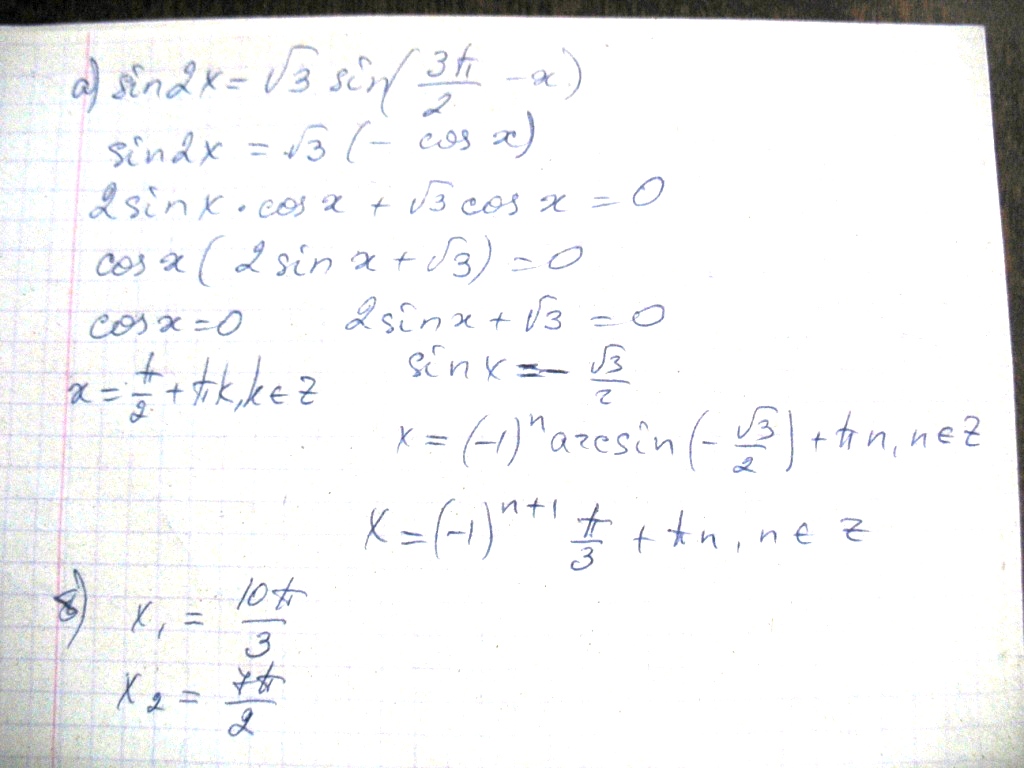 а) sin2x = √3 sin(3π/2 - x)
sin2x = √3 (- cos x)
2sinx · cos x + √3 cos x = 0
cos x ( 2 sin x + √3) = 0
cos x = 0 2sinx + √3 = 0
sin x = - √3/2
x = π/2 + πk, k ∈ Z
x = (-1)ⁿ arcsin (- √3/2) + πn, n ∈ Z
x = (-1)ⁿ⁺¹ π/3 + πn, n ∈ Z
б) x₁ = 10π/3
x₂ = 7π/2